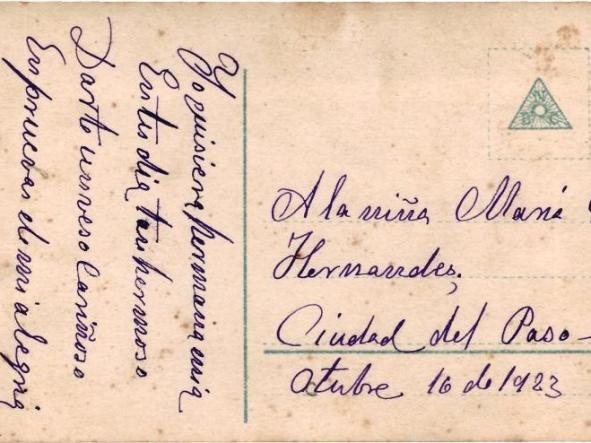 Yo quisiera hermana mia
En tu dia tan hermoso
Darte un veso Cariñoso
En pruevas de mi alegria
A la niña Mariá
Hernandes,
Ciudad del Paso -
Otubre 16 de 1923